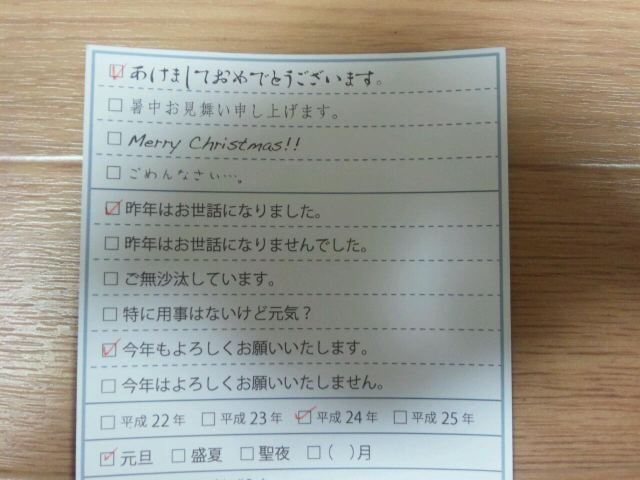 ☑ あけましておめでとうございます。
☐ 暑中お見舞い申し上げます。
☐ Merry Christmas!!
☐ ごめんなさい…。
☑ 昨年はお世話になりました。
☐ 昨年はお世話になりませんでした。
☐ ご無沙汰しています。
☐ 特に用事はないけど元気？
☑ 今年もよろしくお願いいたします。
☐ 今年はよろしくお願いいたしません。
☐ 平成22年 ☐ 平成23年 ☑ 平成24年 ☐ 平成25年
☑ 元旦 ☐ 盛夏 ☐ 聖夜 ☐ (　)月